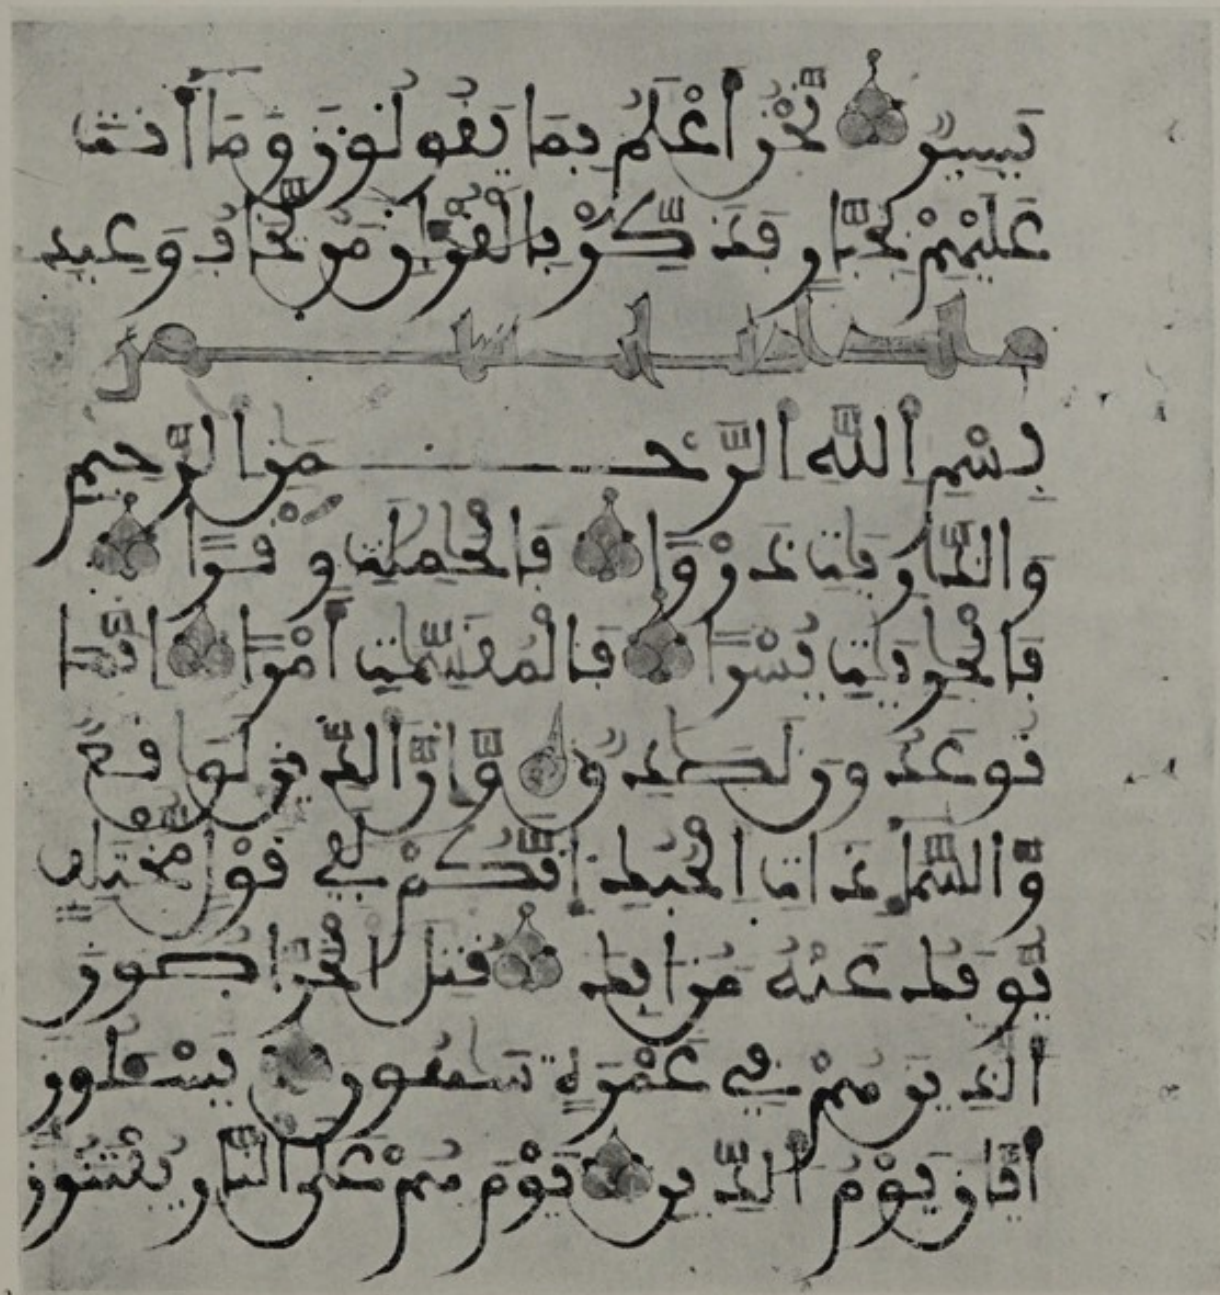 يَسِيرٌ نَّحْنُ أَعْلَمُ بِمَا يَقُولُونَ وَمَا أَنتَ
عَلَيْهِم بِجَبَّارٍ فَذَكِّرْ بِالْقُرْءَانِ مَنْ يَخَافُ وَعِيدِ
بِسْمِ اللَّهِ الرَّحْمَنِ الرَّحِيمِ
وَالذَّارِيَاتِ ذَرْوًا فَالْحَامِلَاتِ وِقْرًا
فَالْجَارِيَاتِ يُسْرًا فَالْمُقَسِّمَاتِ أَمْرًا إِنَّمَا
تُوعَدُونَ لَصَادِقٌ وَإِنَّ الدِّينَ لَوَاقِعٌ
وَالسَّمَاءِ ذَاتِ الْحُبُكِ إِنَّكُمْ لَفِي قَوْلٍ مُّخْتَلِفٍ
يُوفَكُ عَنْهُ مَنْ افِكَ قُتِلَ الْخَرَّاصُونَ
الَّذِينَ هُمْ فِي غَمْرَةٍ سَاهُونَ يَسْـَٔلُونَ
أَيَّانَ يَوْمُ الدِّينِ يَوْمَ هُمْ عَلَى النَّارِ يُفْتَنُونَ